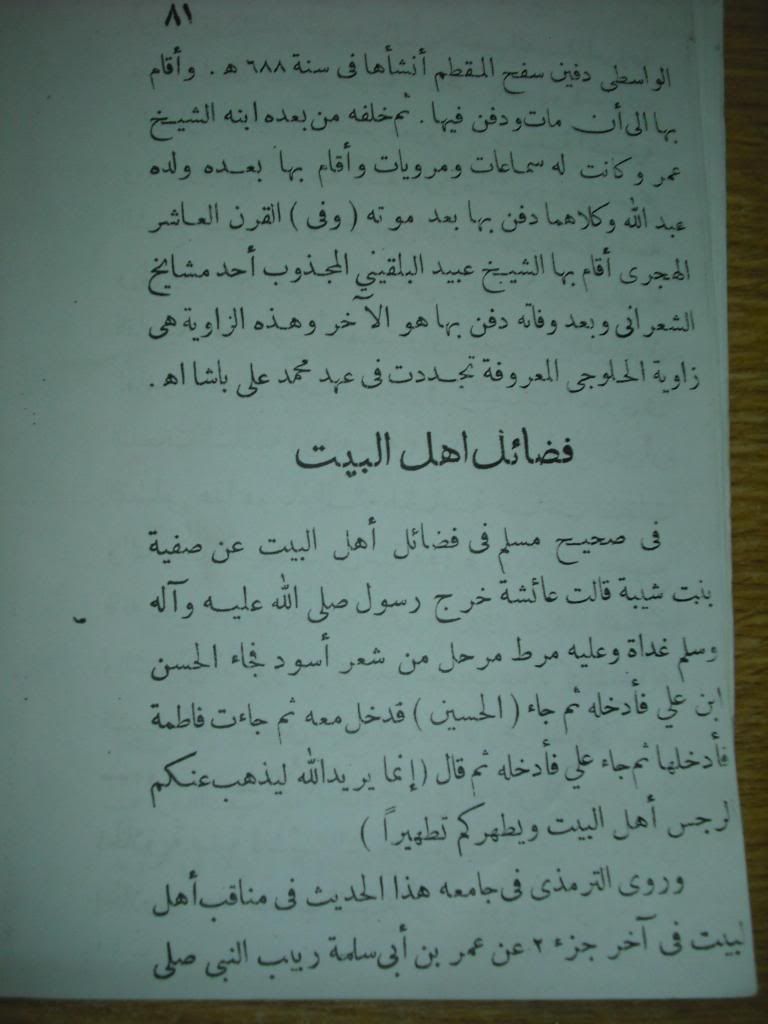 ٨١
الواسطى دفين سفح المقطم أنشأها فى سنة ٦٨٨ ه . وأقام
بها الى أن مات ودفن فيها . ثم خلفه من بعده ابنه الشيخ
عمر وكانت له سماعات ومرويات وأقام بها بعده ولده
عبد الله وكلاهما دفن بها بعد موته ( وفى ) القرن العاشر
الهجرى أقام بها الشيخ عبيد البلقيني المجذوب أحد مشايخ
الشعرانى وبعد وفاته دفن بها هو الآخر وهذه الزاوية هى
زاوية الحلوجى المعروفة تجددت فى عهد محمد على باشا اه .
فضائل اهل البيت
فى صحيح مسلم فى فضائل أهل البيت عن صفية
بنت شيبة قالت عائشة خرج رسول صلى الله عليه وآله
وسلم غداة وعليه مرط مرحل من شعر أسود فجاء الحسن
ابن علي فأدخله ثم جاء ( الحسين ) فدخل معه ثم جاءت فاطمة
فأدخلها ثم جاء علي فأدخله ثم قال ( إنما يريد الله ليذهب عنكم
لرجس أهل البيت ويطهركم تطهيراً )
وروى الترمذى فى جامعه هذا الحديث فى مناقب أهل
لبيت فى آخر جزء ٢ عن عمر بن أبى سلمة ربيب النبى صلى